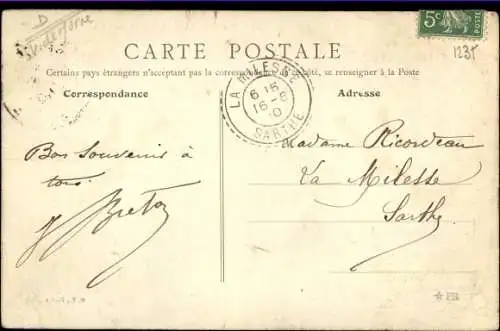 D
5c
1235
POSTES
CARTE POSTALE
Certains pays étrangers n'acceptant pas la correspondance de ce côté, se renseigner à la Poste
Correspondance
Adresse
LA MILESSE
6 15
16-8
10
SARTHE
Bon Souvenir à
tous.
Breton
Madame Ricordeau
La Milesse
Sarthe